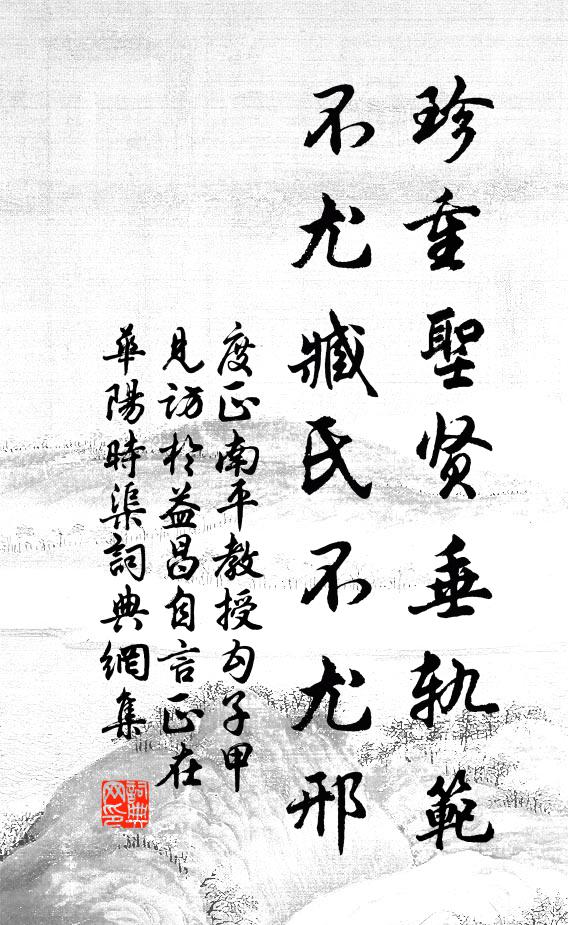 珍重聖賢垂軌範
不尤臧氏不尤邢
度正南平教授勾子甲
見訪於益昌自言正在
華陽時渠詞典網集
詞典网印